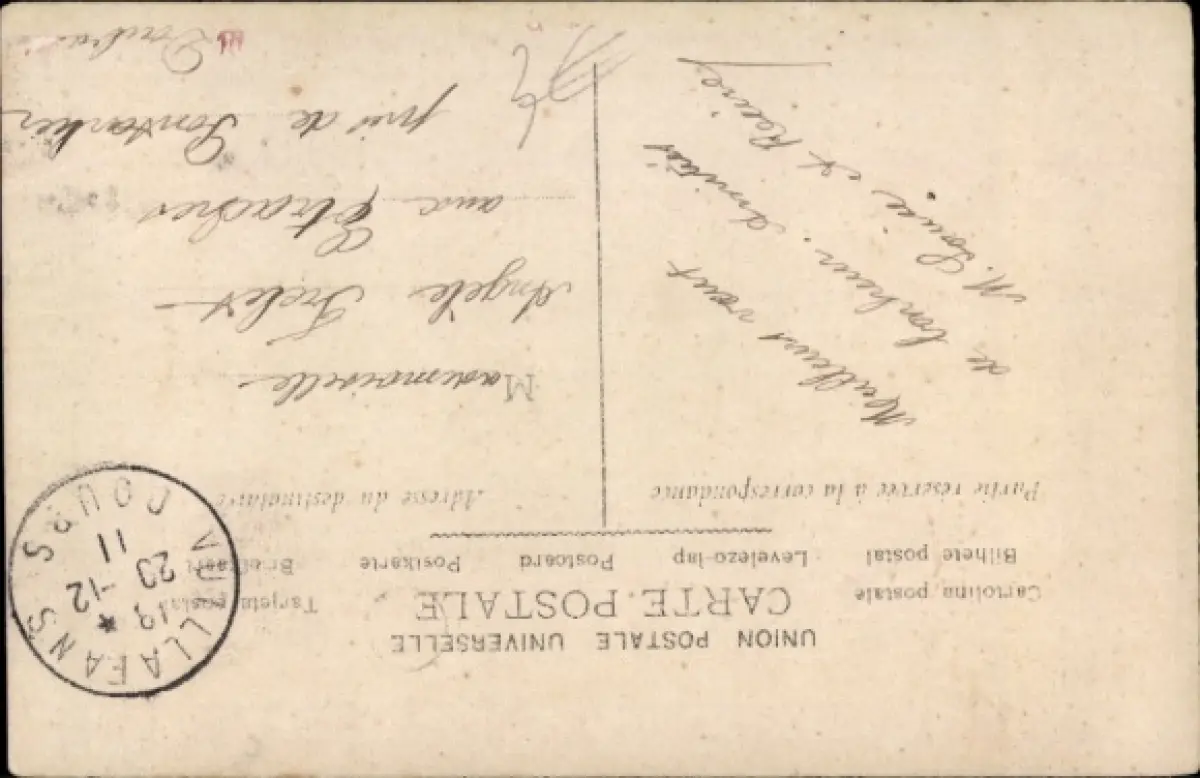 UNION POSTALE UNIVERSELLE
CARTE POSTALE
Cartolina postale
Tarjeta postal
Bilhete postal
Levelezo-lap
Postcard
Postkarte
Briefkaart
Partie réservée à la correspondance
Meilleurs vœux
de bonheur. Amitiés
M. Louise et Reine
Adresse du destinataire
Mademoiselle
Angèle
aux Etraches
près de Pontarlier
Doubs
VUILLAFANS
DOUBS
19
23 -12
11